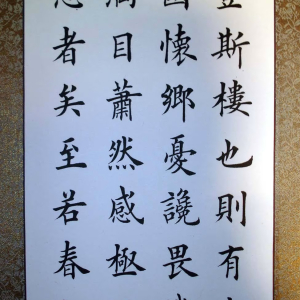 登斯樓也則有
國懷鄉憂讒畏
滿目蕭然感極
者矣至若春